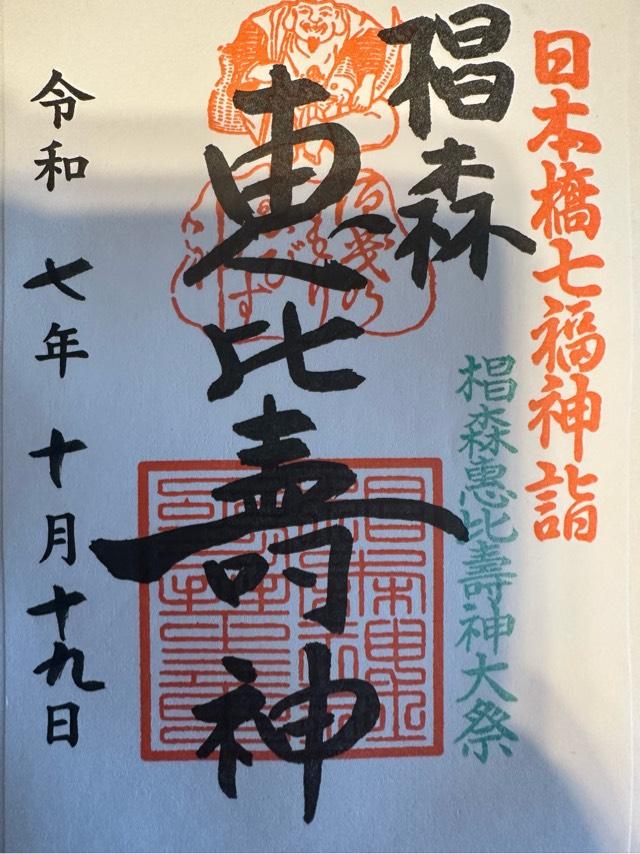 日本橋七福神詣
椙森惠比壽神大祭
椙森
惠比壽神
令和七年十月十九日